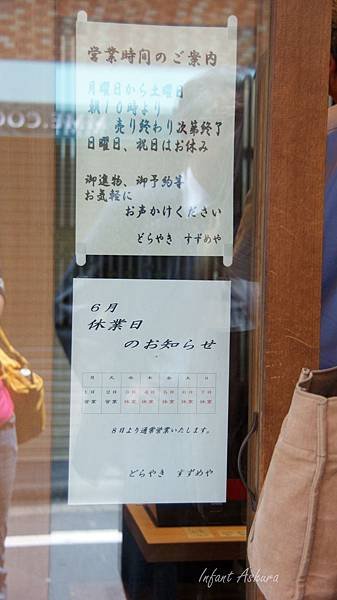 営業時間のご案内
月曜日から土曜日
朝10時より
売り終わり次第終了
日曜日、祝日はお休み
御進物、御予約等
お気軽に
お声かけください
どらやき すずめや
6月
休業日
のお知らせ
月 火 水 木 金 土 日
1日 2日 3日 4日 5日 6日 7日
営業 営業 休業 休業 休業 休業 休業
8日より通常営業いたします。
どらやき すずめや
Infant Askura